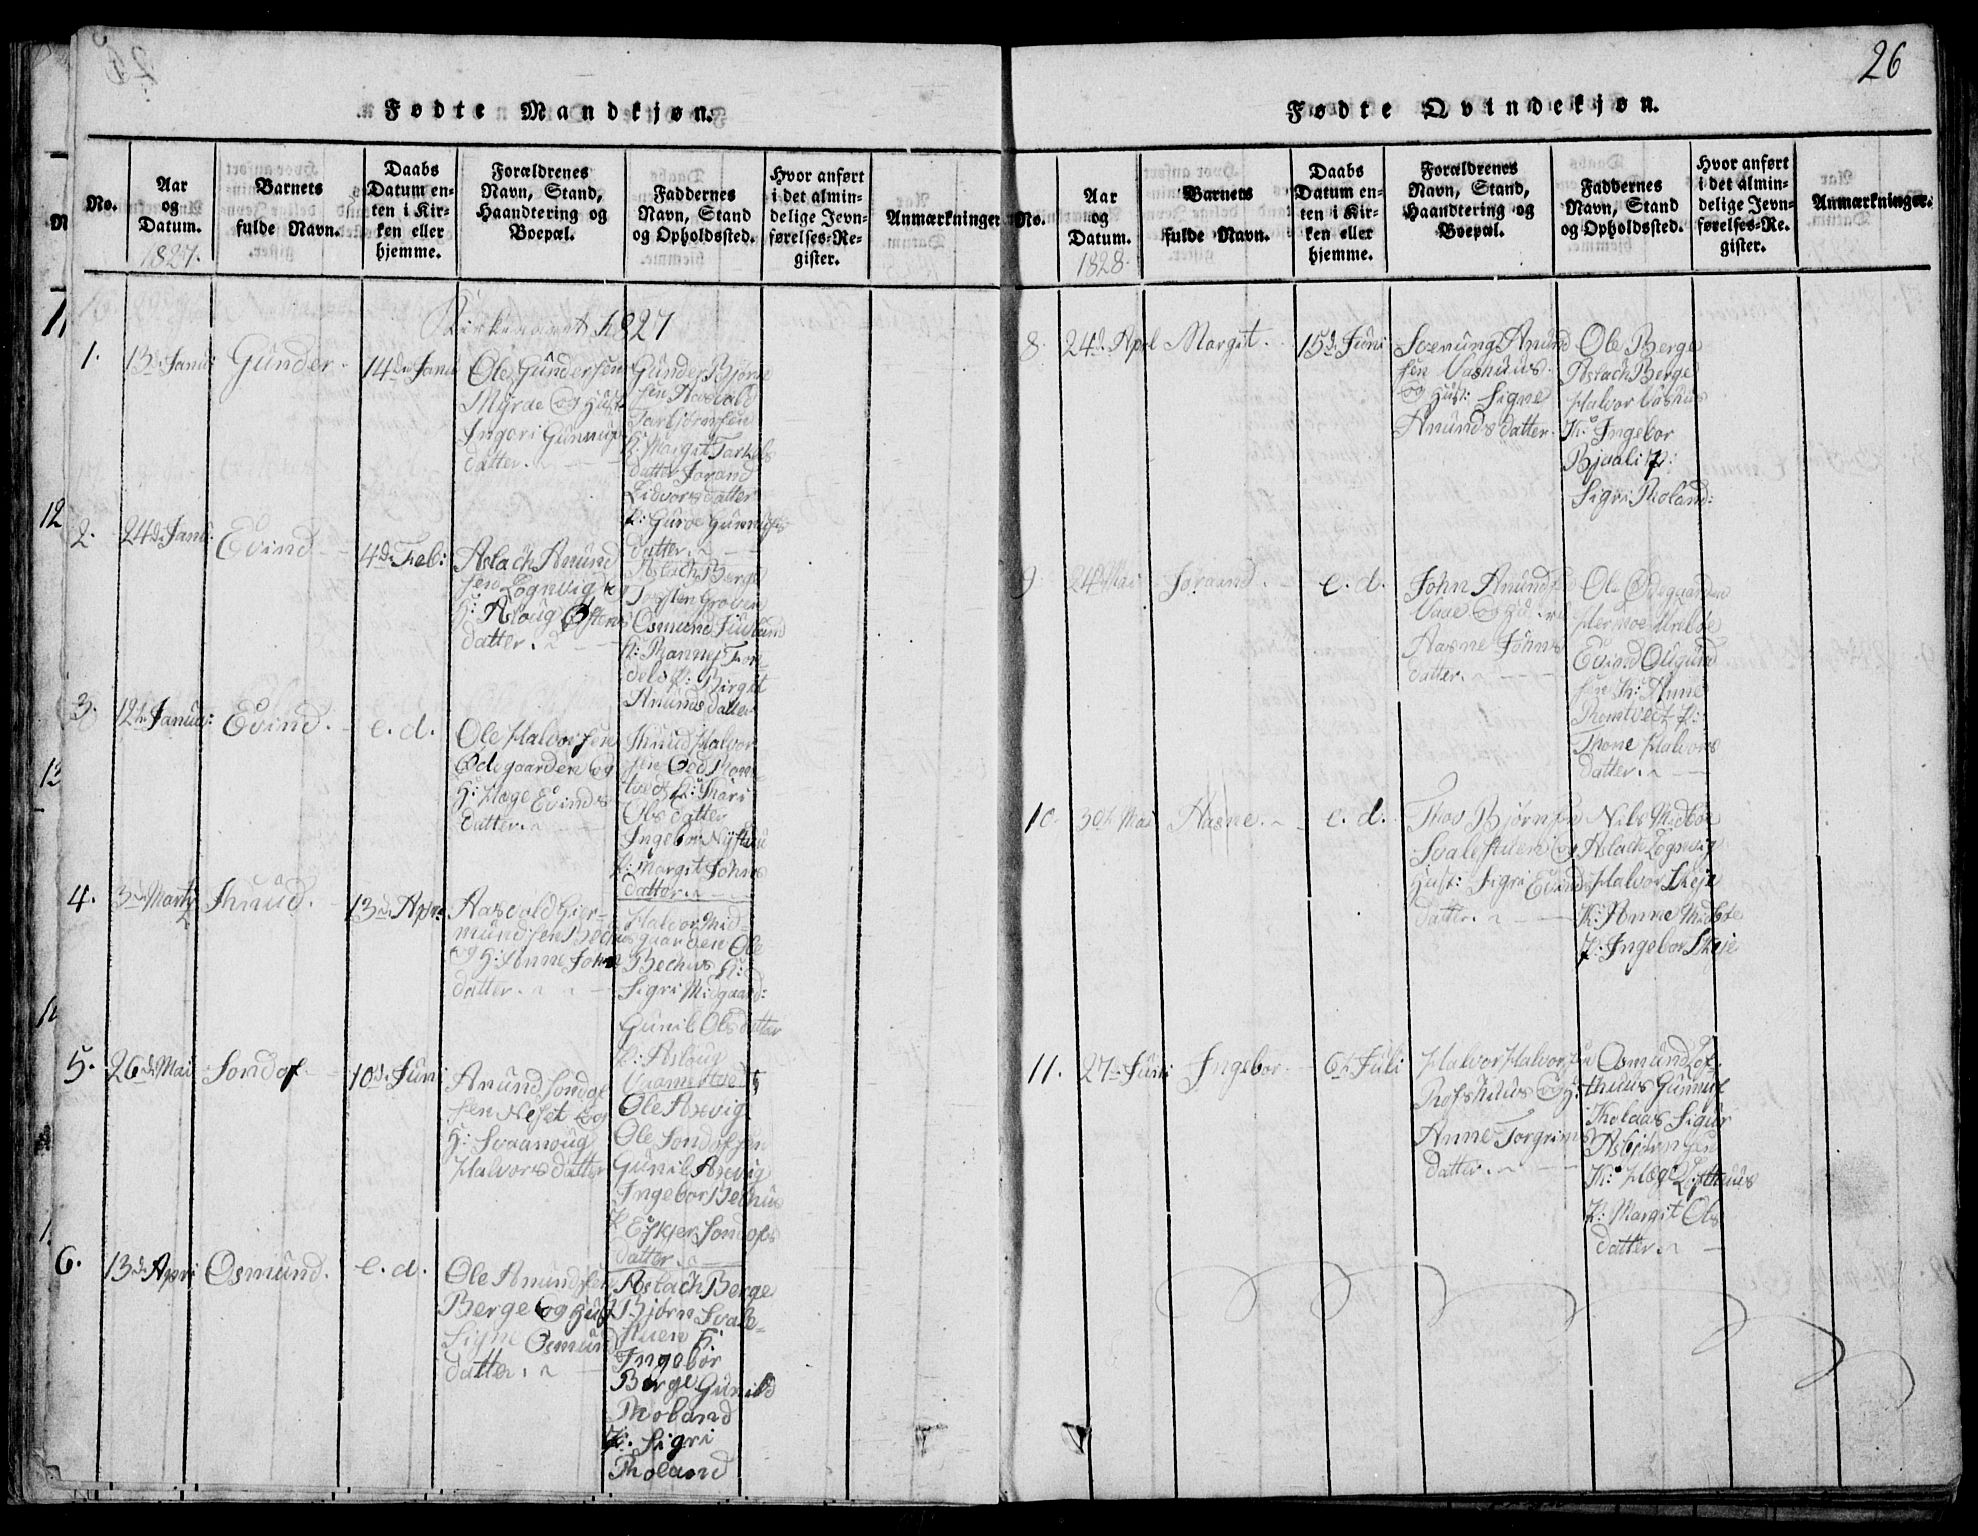 26
Fødte Mandkjøn.
No.
Aar
og
Datum.
1827.
Barnets
fulde Navn.
Daabs
Datum en-
ten i Kir-
ken eller
hjemme.
Forældrenes
Navn, Stand,
Haandtering og
Boepæl.
Faddernes
Navn, Stand
og Opholdssted.
Hvor anført
i det almin-
delige Jevn-
førelses-Re-
gister.
Anmærkninger
1827
1.
13de Janu:
Gunder
14de Janu
Ole Gundersen
Myrae og Hust
Ingeri Gunnup
datter.
Gunder Bjørn
sen Aasvald
Tarbjørnsen
K: Margit Tarkels
datter Jorand
Lidvorsdatter
P: Guroe Gunnufs
datter.
2.
24de Janu:
Evind
4de Feb:
Aslach Anund
sen Lognvig og
H: Asloug Østens
datter.
Aslach Berge
Torsten Groven
Osmund Juvland
datter
P: Birgit
Anunds datter
3.
12te Janua:
Evind.
e. d.
Ole Halvorsen
Ødegaarden og
H: Hæge Evinds
datter.
Knud Halvor
sen
K: Kari
Ols datter
Ingebor Nystuu
P: Margit Johns
datter.
4.
3de Marty
Knud.
13de Apr:
Aasvald Gier-
mundsen Bechus
og H: Anne John
datter.
Halvor Mid-
gaarden Ole
Bechus K:
Sigri Midgaard:
Gunil Olsdatter
P: Asloug
5.
26de Mai
Sondof
10de Juni
Anund Sondof
sen Neset og
H: Svaanoug
Halvorsdatter
Ole Axvig
Ole Sondofsen
Gunil Axvig
Ingebor Bechus
P: Eskjer Sondofs
datter.
6.
13de Apri
Osmund.
e. d.
Ole Anundsen
Berge og Hust
Signe Osmund
datter.
Aslach Berge
Bjørn Svale-
stuen K:
Ingebor
Berge Gunild
Moland
P: Sigri
Moland
Fødte Qvindekjøn.
No.
Aar
og
Datum.
1828.
Barnets
fulde Navn.
Daabs
Datum en-
ten i Kir-
ken eller
hjemme.
Forældrenes
Navn, Stand,
Haandtering og
Boepæl.
Faddernes
Navn, Stand
og Opholdssted.
Hvor anført
i det almin-
delige Jevn-
førelses-Re-
gister.
Anmærkninger.
8.
24de Aprl
Margit.
15de Juni
Sverung Anund
sen Vashuus
og Hust: Signe
Anunds datter.
Ole Berge
Aslach Berge
Halvor Vashuus
K: Ingebor
Bjaali P:
Sigri Moland:
9.
24de Mai
Joraand.
e. d.
John Anunds
Vaae og
Aasne Johns
datter.
Ole Ødegaarden
Hermoe Urebøe
Evind Olgund
sen K: Anne
Romtvedt P:
Tone Halvors
datter.
10.
30te Mai
Aasne.
e. d.
Thov Bjørnsen
Svalestuen og
Hust: Sigri Evinds
datter.
Nils Midbøe
Aslach Lognvig
Halvor Skeje
K: Anne Midbøe
P: Ingebor Skeje
11.
27de Juni
Ingebor
6te Juli
Halvor Halvorsen
Rofshuus og H:
Anne Torgrims
datter.
Osmund Lof
thuus Gunnul
Kolaas Sigur
Asbjørnsen
K: Hæge Lofthuus
P: Margit Ols
datter.